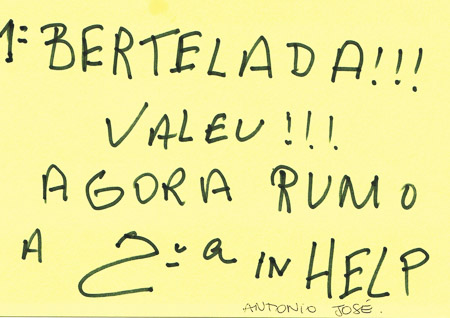 1ª BERTELADA!!!
VALEU!!!
AGORA RUMO
A 2ª IN HELP
ANTONIO JOSÉ.